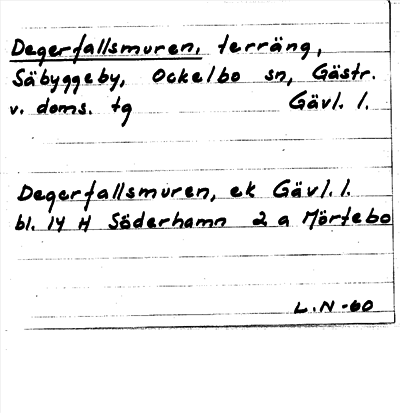 Degerfallsmuren, terräng,
Säbyggeby, Ockelbo sn, Gästr.
v. doms. tg Gävl. l.
Degerfallsmuren, ek Gävl. l.
bl. 14 H Söderhamn 2 a Mörtebo
L.N-60